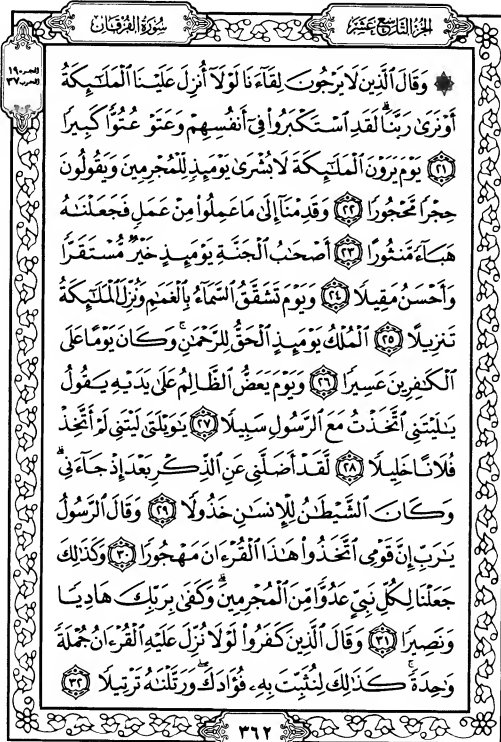 سُورَةُ الفُرْقَان
الجُزْءُ التَّاسِعَ عَشَرَ
الجزء ١٩
الحزب ٣٧
۞ وَقَالَ ٱلَّذِينَ لَا يَرْجُونَ لِقَآءَنَا لَوْلَآ أُنزِلَ عَلَيْنَا ٱلْمَلَٰٓئِكَةُ
أَوْ نَرَىٰ رَبَّنَا ۗ لَقَدِ ٱسْتَكْبَرُوا۟ فِىٓ أَنفُسِهِمْ وَعَتَوْ عُتُوًّا كَبِيرًا
﴿٢١﴾ يَوْمَ يَرَوْنَ ٱلْمَلَٰٓئِكَةَ لَا بُشْرَىٰ يَوْمَئِذٍ لِّلْمُجْرِمِينَ وَيَقُولُونَ
حِجْرًا مَّحْجُورًا ﴿٢٢﴾ وَقَدِمْنَآ إِلَىٰ مَا عَمِلُوا۟ مِنْ عَمَلٍ فَجَعَلْنَٰهُ
هَبَآءً مَّنثُورًا ﴿٢٣﴾ أَصْحَٰبُ ٱلْجَنَّةِ يَوْمَئِذٍ خَيْرٌ مُّسْتَقَرًّا
وَأَحْسَنُ مَقِيلًا ﴿٢٤﴾ وَيَوْمَ تَشَقَّقُ ٱلسَّمَآءُ بِٱلْغَمَٰمِ وَنُزِّلَ ٱلْمَلَٰٓئِكَةُ
تَنزِيلًا ﴿٢٥﴾ ٱلْمُلْكُ يَوْمَئِذٍ ٱلْحَقُّ لِلرَّحْمَٰنِ ۚ وَكَانَ يَوْمًا عَلَى
ٱلْكَٰفِرِينَ عَسِيرًا ﴿٢٦﴾ وَيَوْمَ يَعَضُّ ٱلظَّالِمُ عَلَىٰ يَدَيْهِ يَقُولُ
يَٰلَيْتَنِى ٱتَّخَذْتُ مَعَ ٱلرَّسُولِ سَبِيلًا ﴿٢٧﴾ يَٰوَيْلَتَىٰ لَيْتَنِى لَمْ أَتَّخِذْ
فُلَانًا خَلِيلًا ﴿٢٨﴾ لَّقَدْ أَضَلَّنِى عَنِ ٱلذِّكْرِ بَعْدَ إِذْ جَآءَنِى ۗ
وَكَانَ ٱلشَّيْطَٰنُ لِلْإِنسَٰنِ خَذُولًا ﴿٢٩﴾ وَقَالَ ٱلرَّسُولُ
يَٰرَبِّ إِنَّ قَوْمِى ٱتَّخَذُوا۟ هَٰذَا ٱلْقُرْءَانَ مَهْجُورًا ﴿٣٠﴾ وَكَذَٰلِكَ
جَعَلْنَا لِكُلِّ نَبِىٍّ عَدُوًّا مِّنَ ٱلْمُجْرِمِينَ ۗ وَكَفَىٰ بِرَبِّكَ هَادِيًا
وَنَصِيرًا ﴿٣١﴾ وَقَالَ ٱلَّذِينَ كَفَرُوا۟ لَوْلَا نُزِّلَ عَلَيْهِ ٱلْقُرْءَانُ جُمْلَةً
وَٰحِدَةً ۚ كَذَٰلِكَ لِنُثَبِّتَ بِهِۦ فُؤَادَكَ ۖ وَرَتَّلْنَٰهُ تَرْتِيلًا ﴿٣٢﴾
٣٦٢